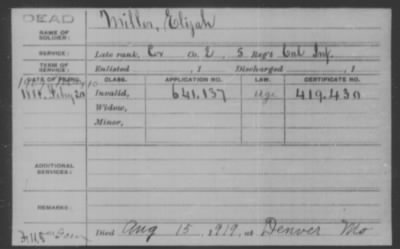 DEAD
NAME OF SOLDIER: Miller, Elijah
SERVICE: Late rank, Co. E, 5 Reg't Cal Inf.
TERM OF SERVICE: Enlisted , 1 Discharged , 1
DATE OF FILING. CLASS. APPLICATION NO. LAW. CERTIFICATE NO.
Invalid, 641.137 419.430
Widow,
Minor,
ADDITIONAL SERVICES:
REMARKS:
Died Aug 15, 1919, at Denver Mo